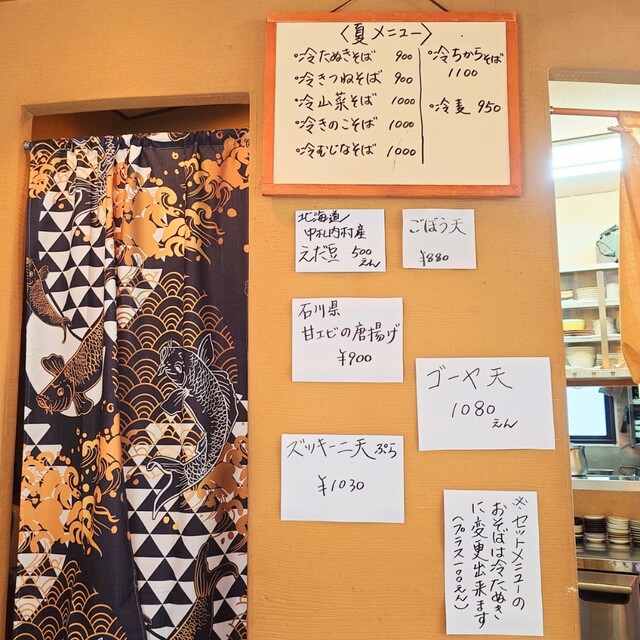 〈夏メニュー〉
・冷たぬきそば 900
・冷きつねそば 900
・冷山菜そば 1000
・冷きのこそば 1000
・冷むじなそば 1000
・冷ちからそば
1100
・冷麦 950
北海道
中札内村産
えだ豆 500えん
ごぼう天
¥880
石川県
甘エビの唐揚げ
¥900
ゴーヤ天
1080えん
ズッキーニ天ぷら
¥1030
※セットメニューの
おそばは冷たぬき
に変更出来ます
(プラス一〇〇えん)